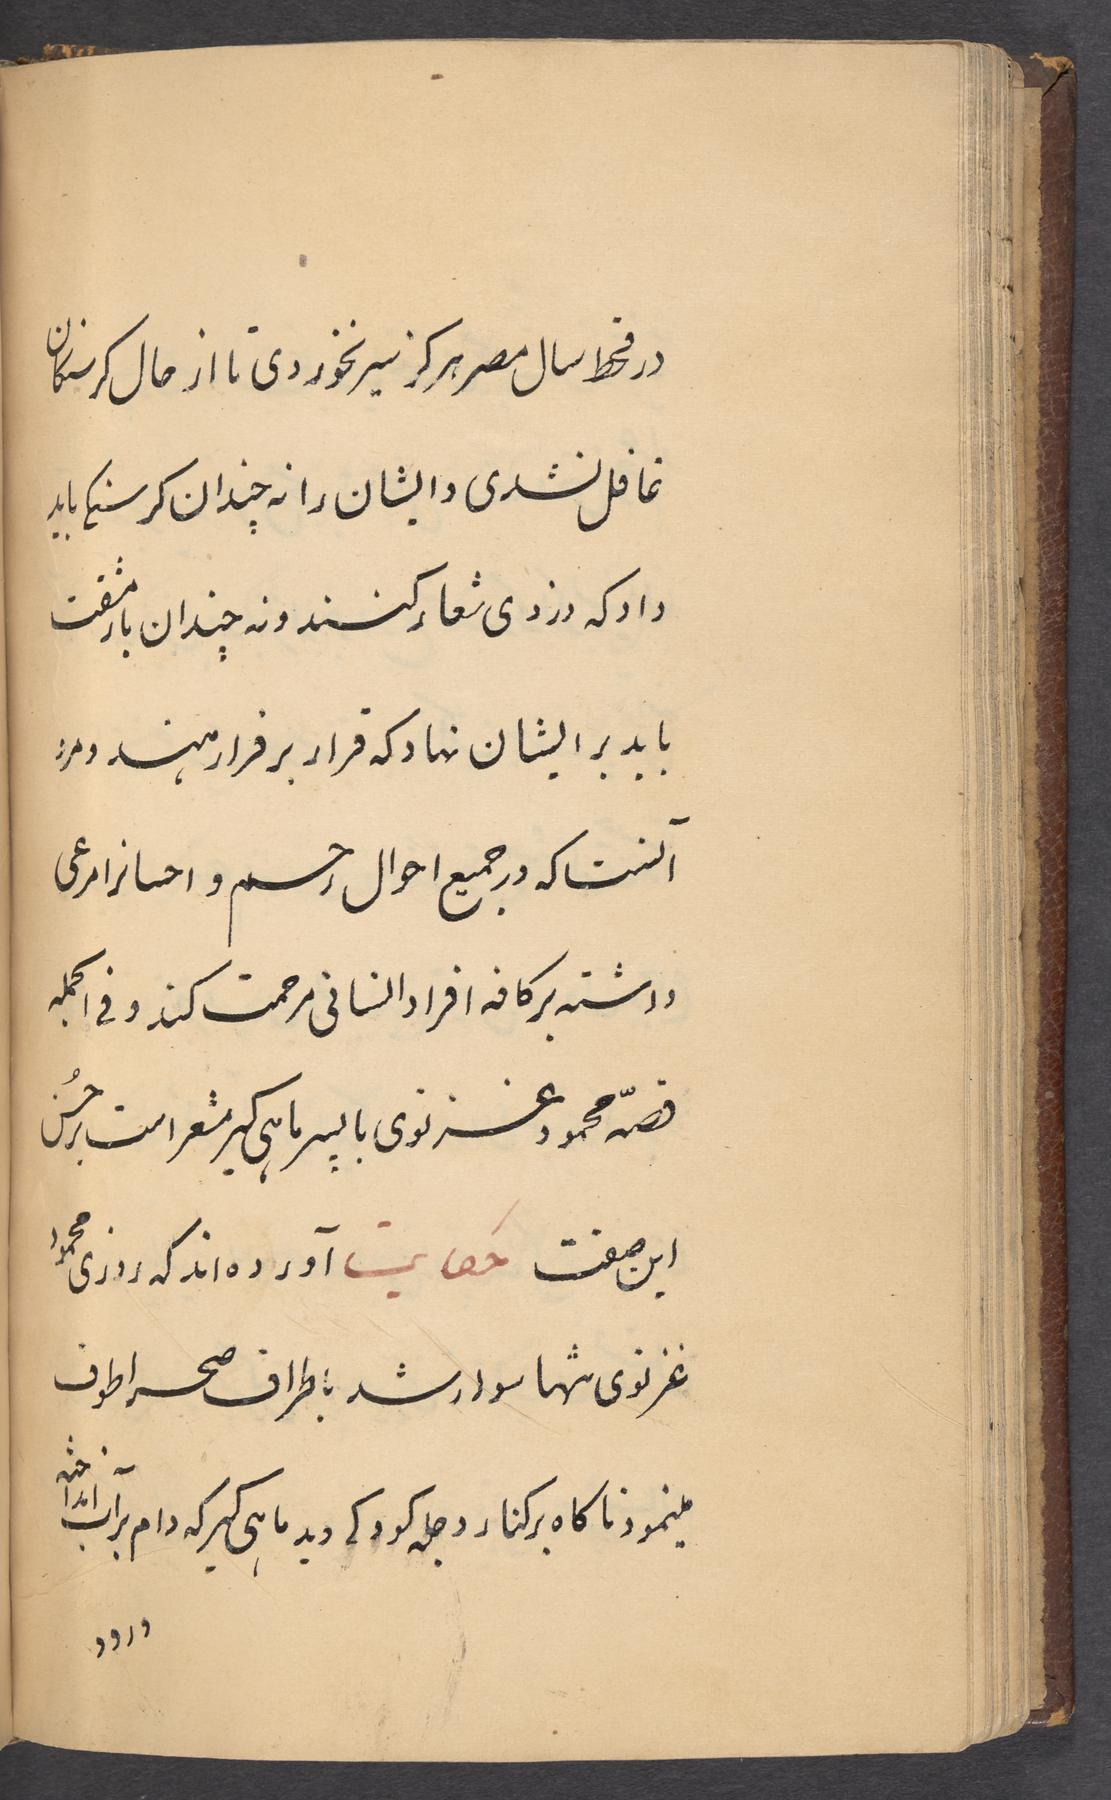 در قحط سال مصر هرکز سیر نخوردی تا از حال کرسنکان
غافل نشدی و ایشان را نه چندان کرسنکی باید
داد که دزدی شعار کنند و نه چندان بار مشقت
باید بر ایشان نهاد که قرار بر فرار نهند و مرد
آنست که در جمیع احوال رحم و احسانرا مرعی
داشته بر کافه افراد انسانی مرحمت کند و فی الجمله
قصّه محمود غزنوی با پسر ماهی کیر مشعر است بر حُسن
این صفت حکایت آورده‌اند که روزی محمود
غزنوی تنها سوار شد باطراف صحرا طوف
مینمود ناکاه بر کنار دجله کودکی دید ماهی کیر که دام بر آب انداخته
و دو